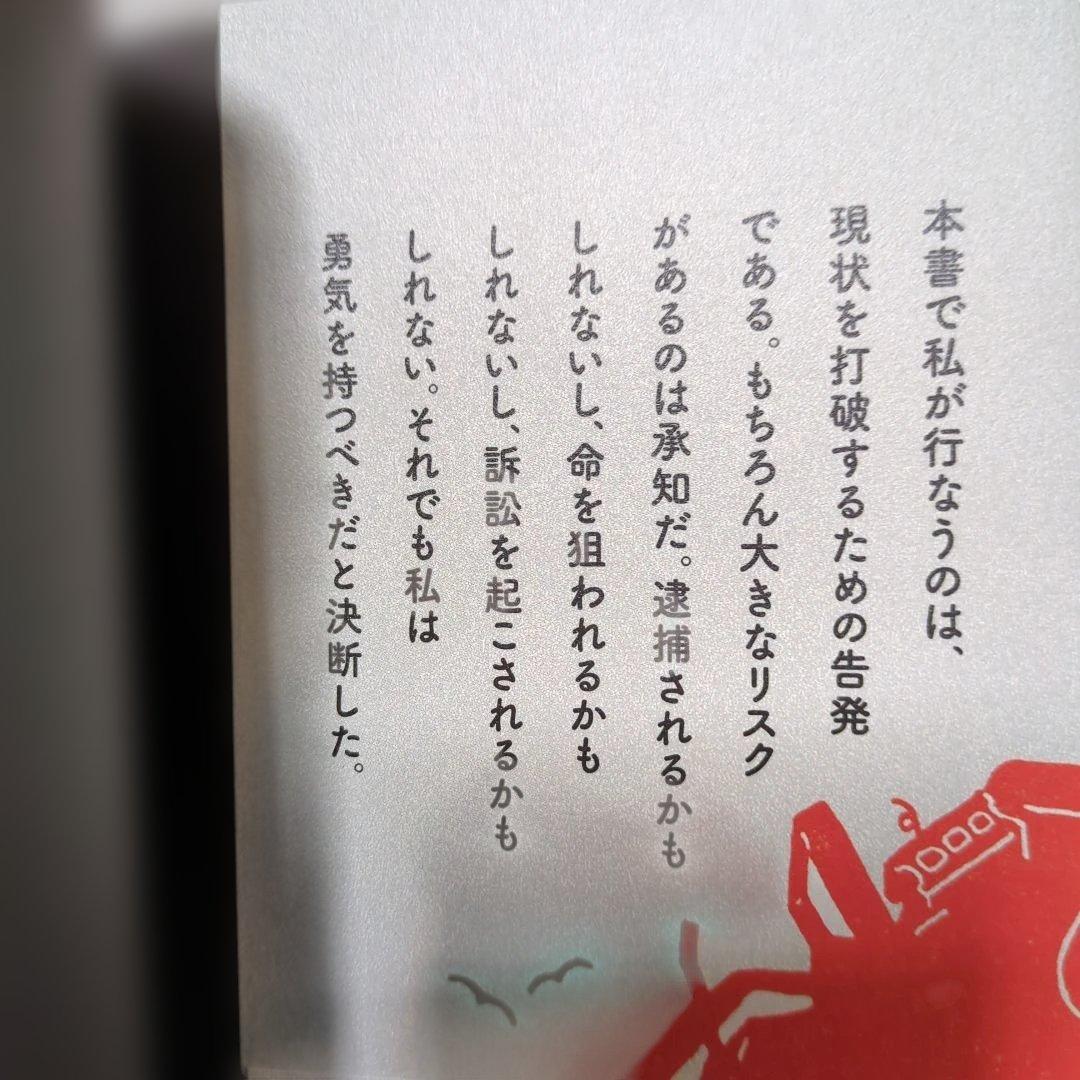 本書で私が行なうのは、
現状を打破するための告発
である。もちろん大きなリスク
があるのは承知だ。逮捕されるかも
しれないし、命を狙われるかも
しれないし、訴訟を起こされるかも
しれない。それでも私は
勇気を持つべきだと決断した。